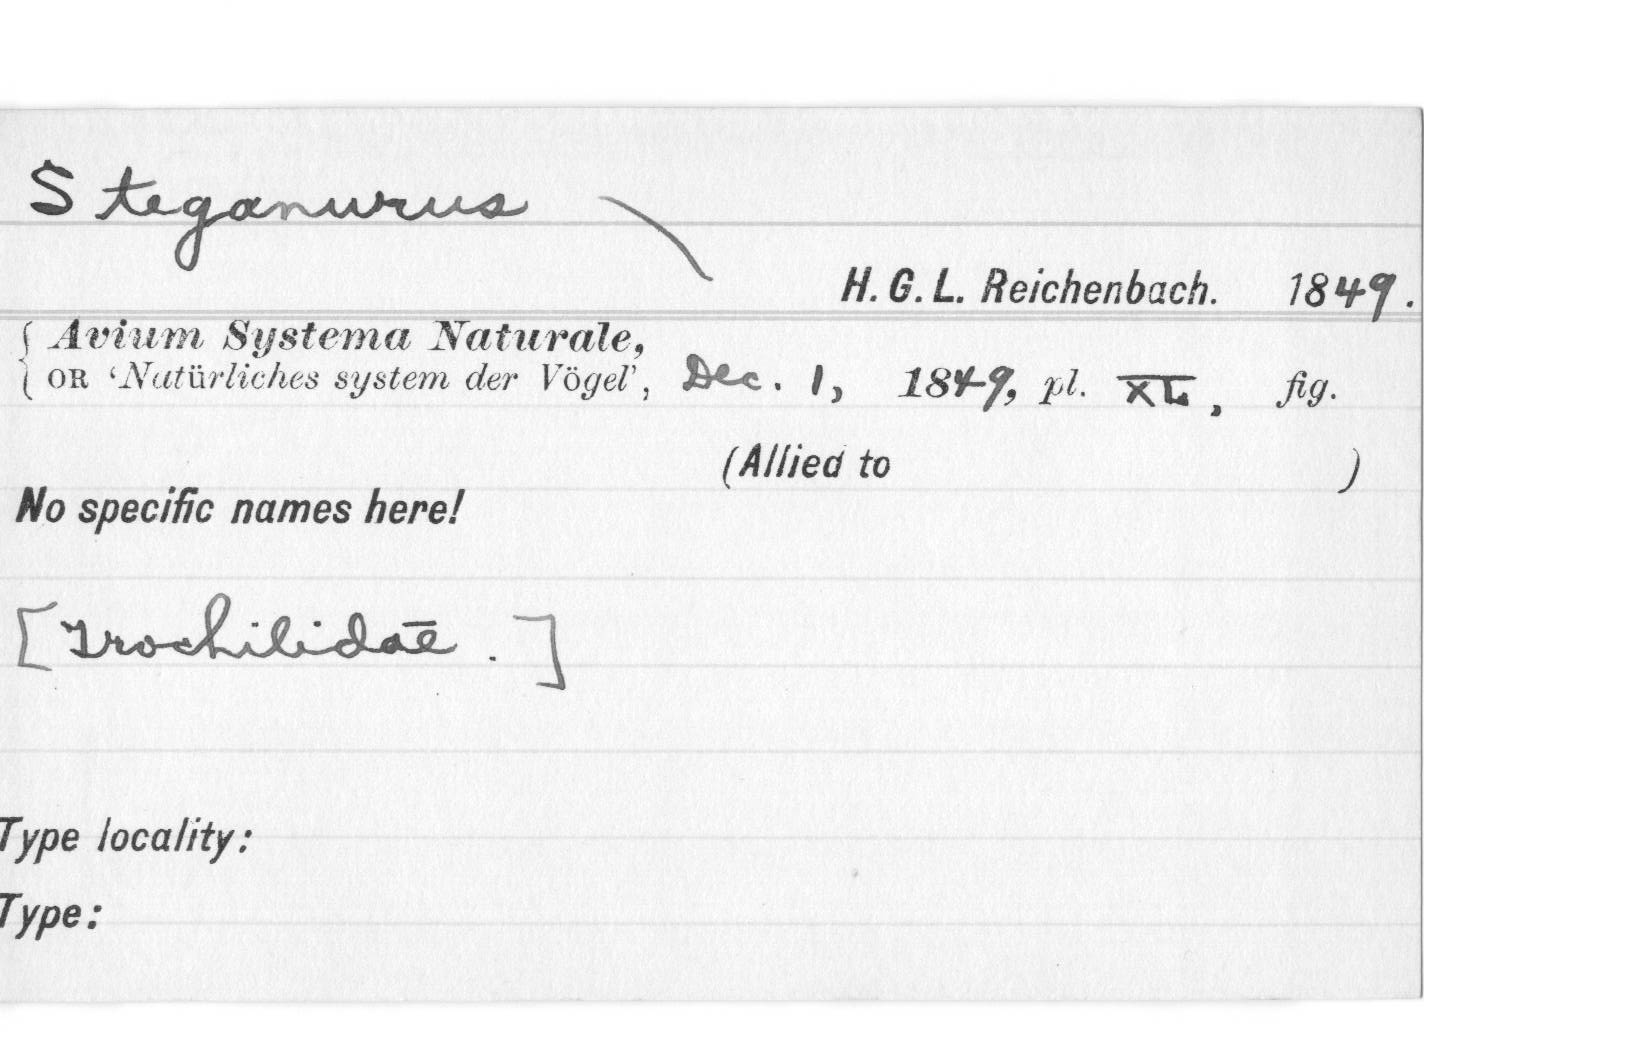 Steganurus
H. G. L. Reichenbach. 1849.
Avium Systema Naturale,
OR ‘Natürliches system der Vögel’, Dec. 1, 1849, pl. XL, fig.
(Allied to )
No specific names here!
[Trochilidae.]
Type locality:
Type: